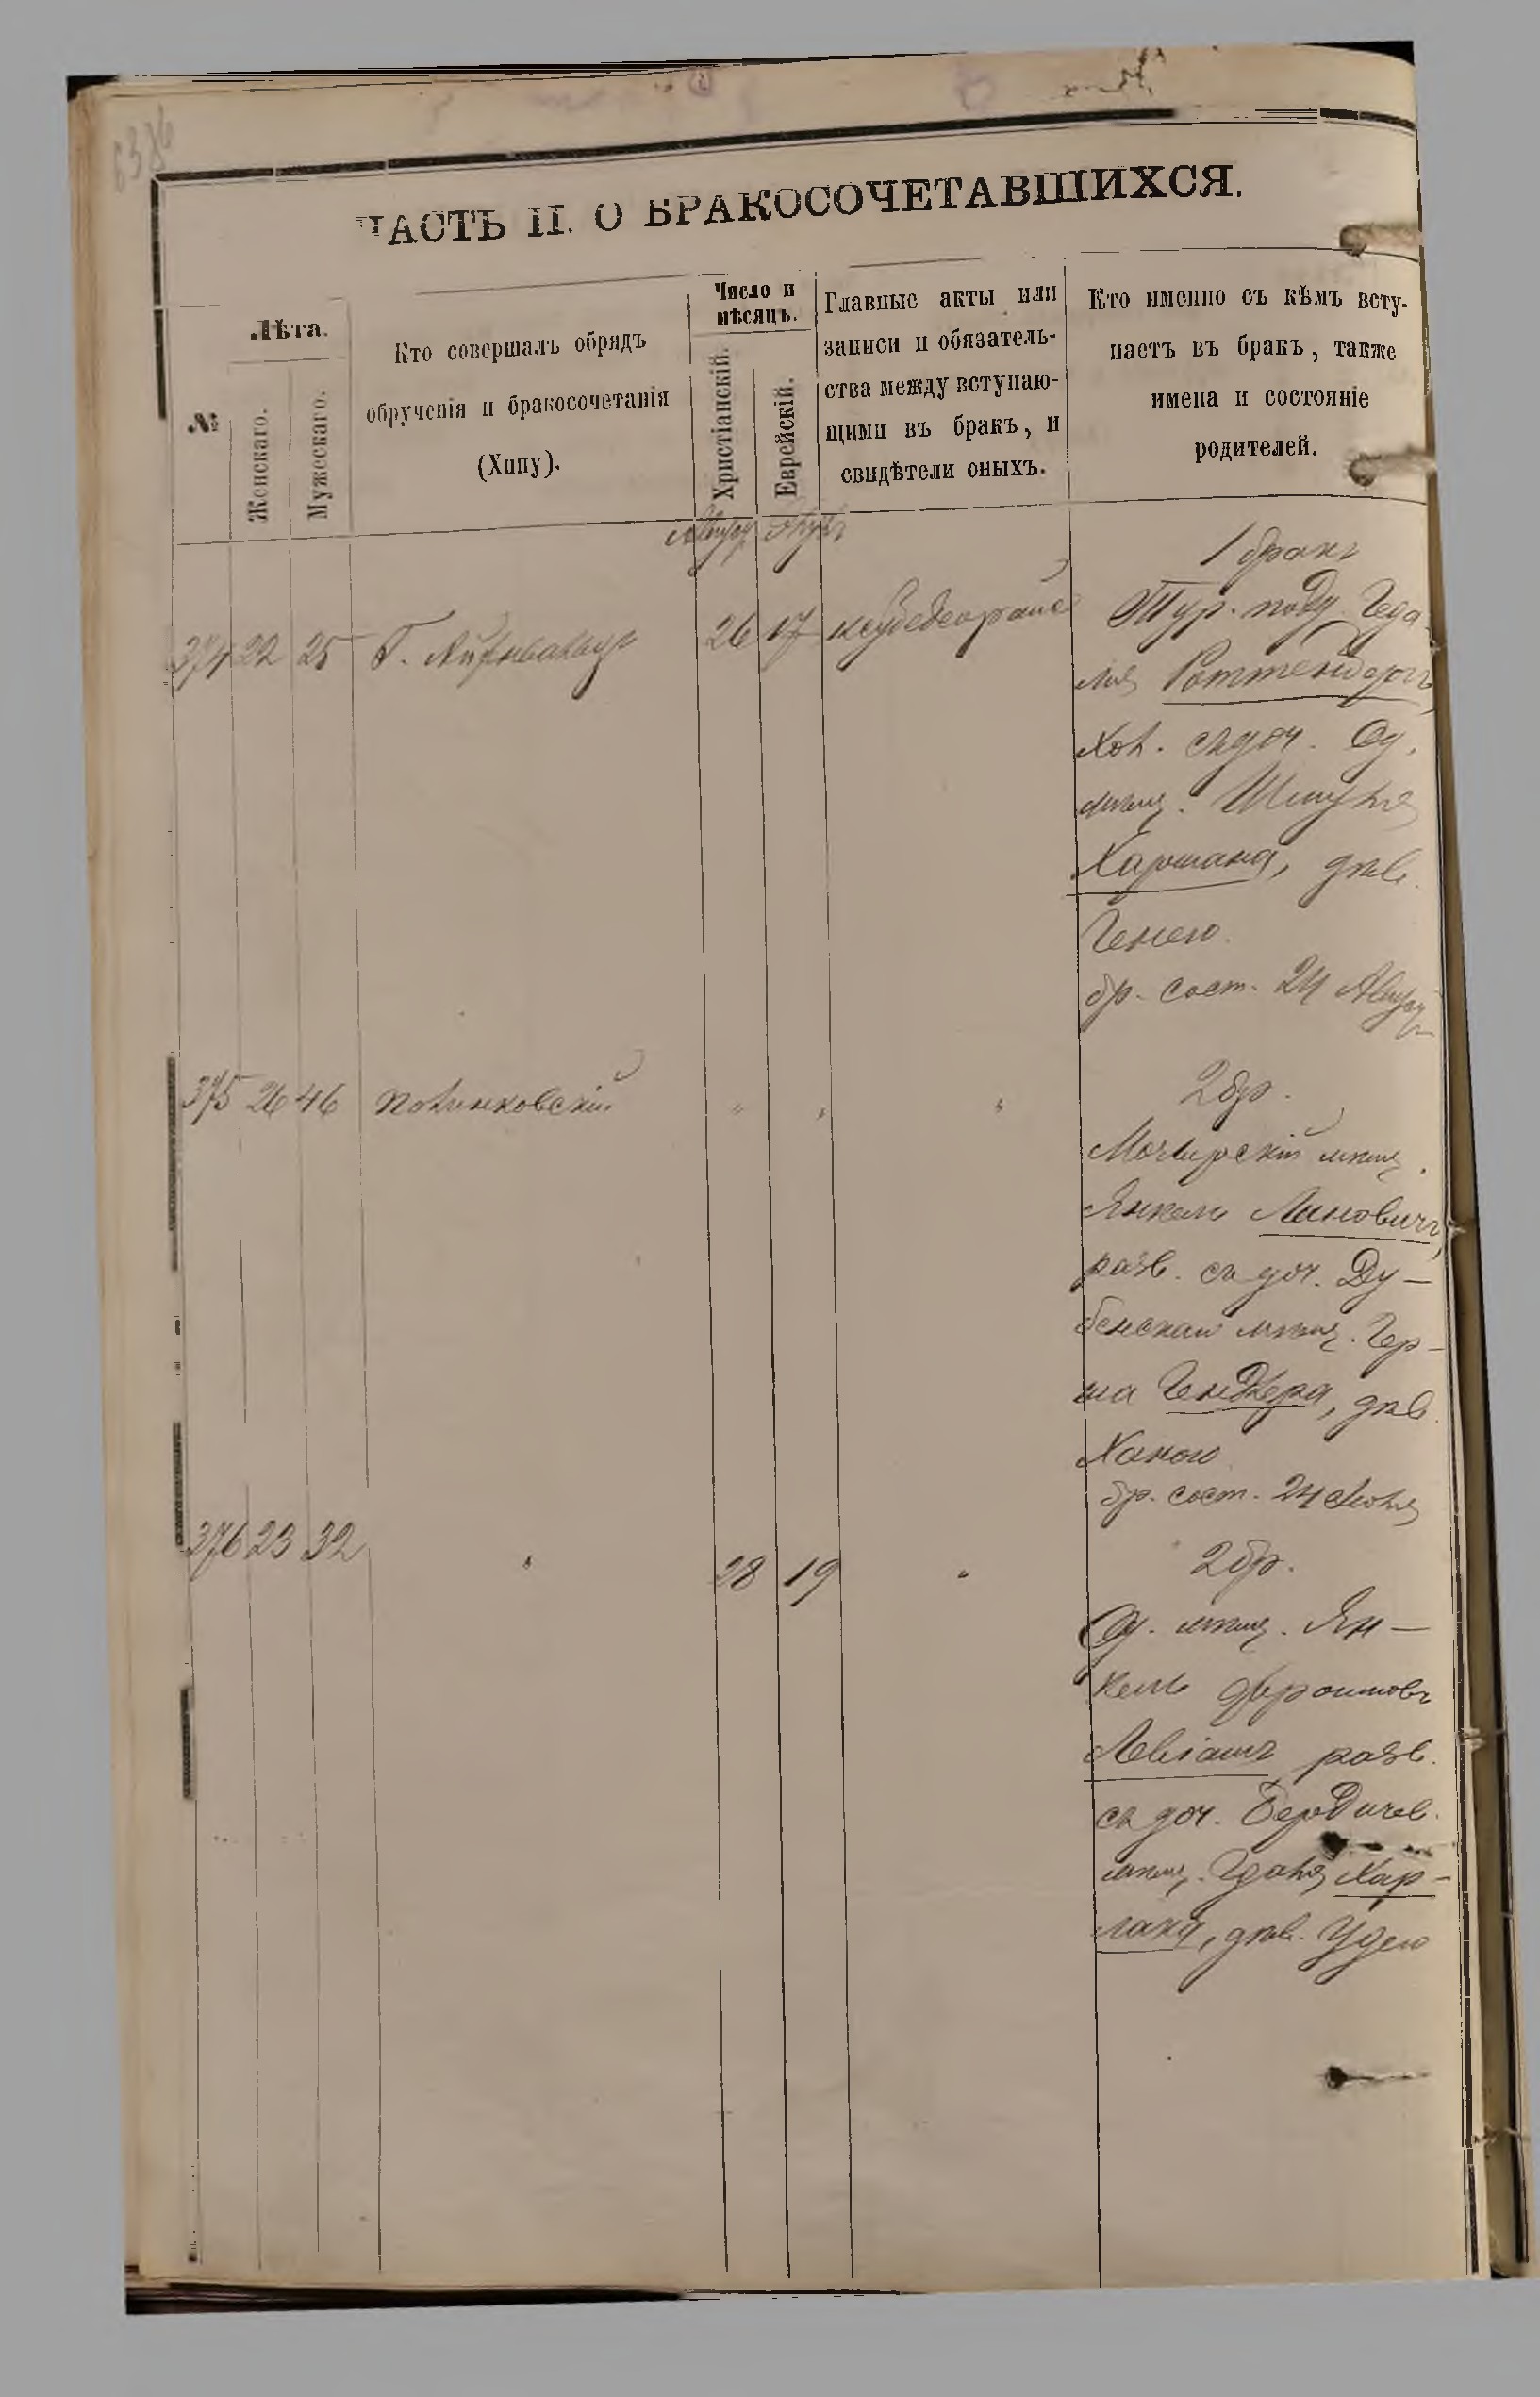 ЧАСТЬ II. О БРАКОСОЧЕТАВШИХСЯ.
№
Лѣта.
Женскаго.
Мужескаго.
Кто совершалъ обрядъ
обрученія и бракосочетанія
(Хипу).
Число и
мѣсяцъ.
Христіанскій.
Еврейскій.
Главные акты или
записи и обязатель-
ства между вступаю-
щими въ бракъ, и
свидѣтели оныхъ.
Кто именно съ кѣмъ всту-
паетъ въ бракъ, также
имена и состояніе
родителей.
374 22 25 Г. 26 17
1 бракъ
Тур. подд. Геда
лія Роттендоргъ,
хол. съ доч. Од.
мѣщ. Шмуля
Харшана, дѣв.
Генею.
бр. сост. 24 Август
375 26 46 Полинковскій " " "
2 бр.
Мозырскій мѣщ.
Янкель Линовичъ,
разв. съ доч. Ду-
бенскаго мѣщ. Гер-
ша Гендлера, дѣв.
Ханою
бр. сост. 24 Іюля
376 23 32 " 28 19 "
2 бр.
Од. мѣщ. Ян-
кель Фроимовъ
Левіашъ разв.
съ доч. Бердичев.
мѣщ. Хар-
лана, дѣв. Удею